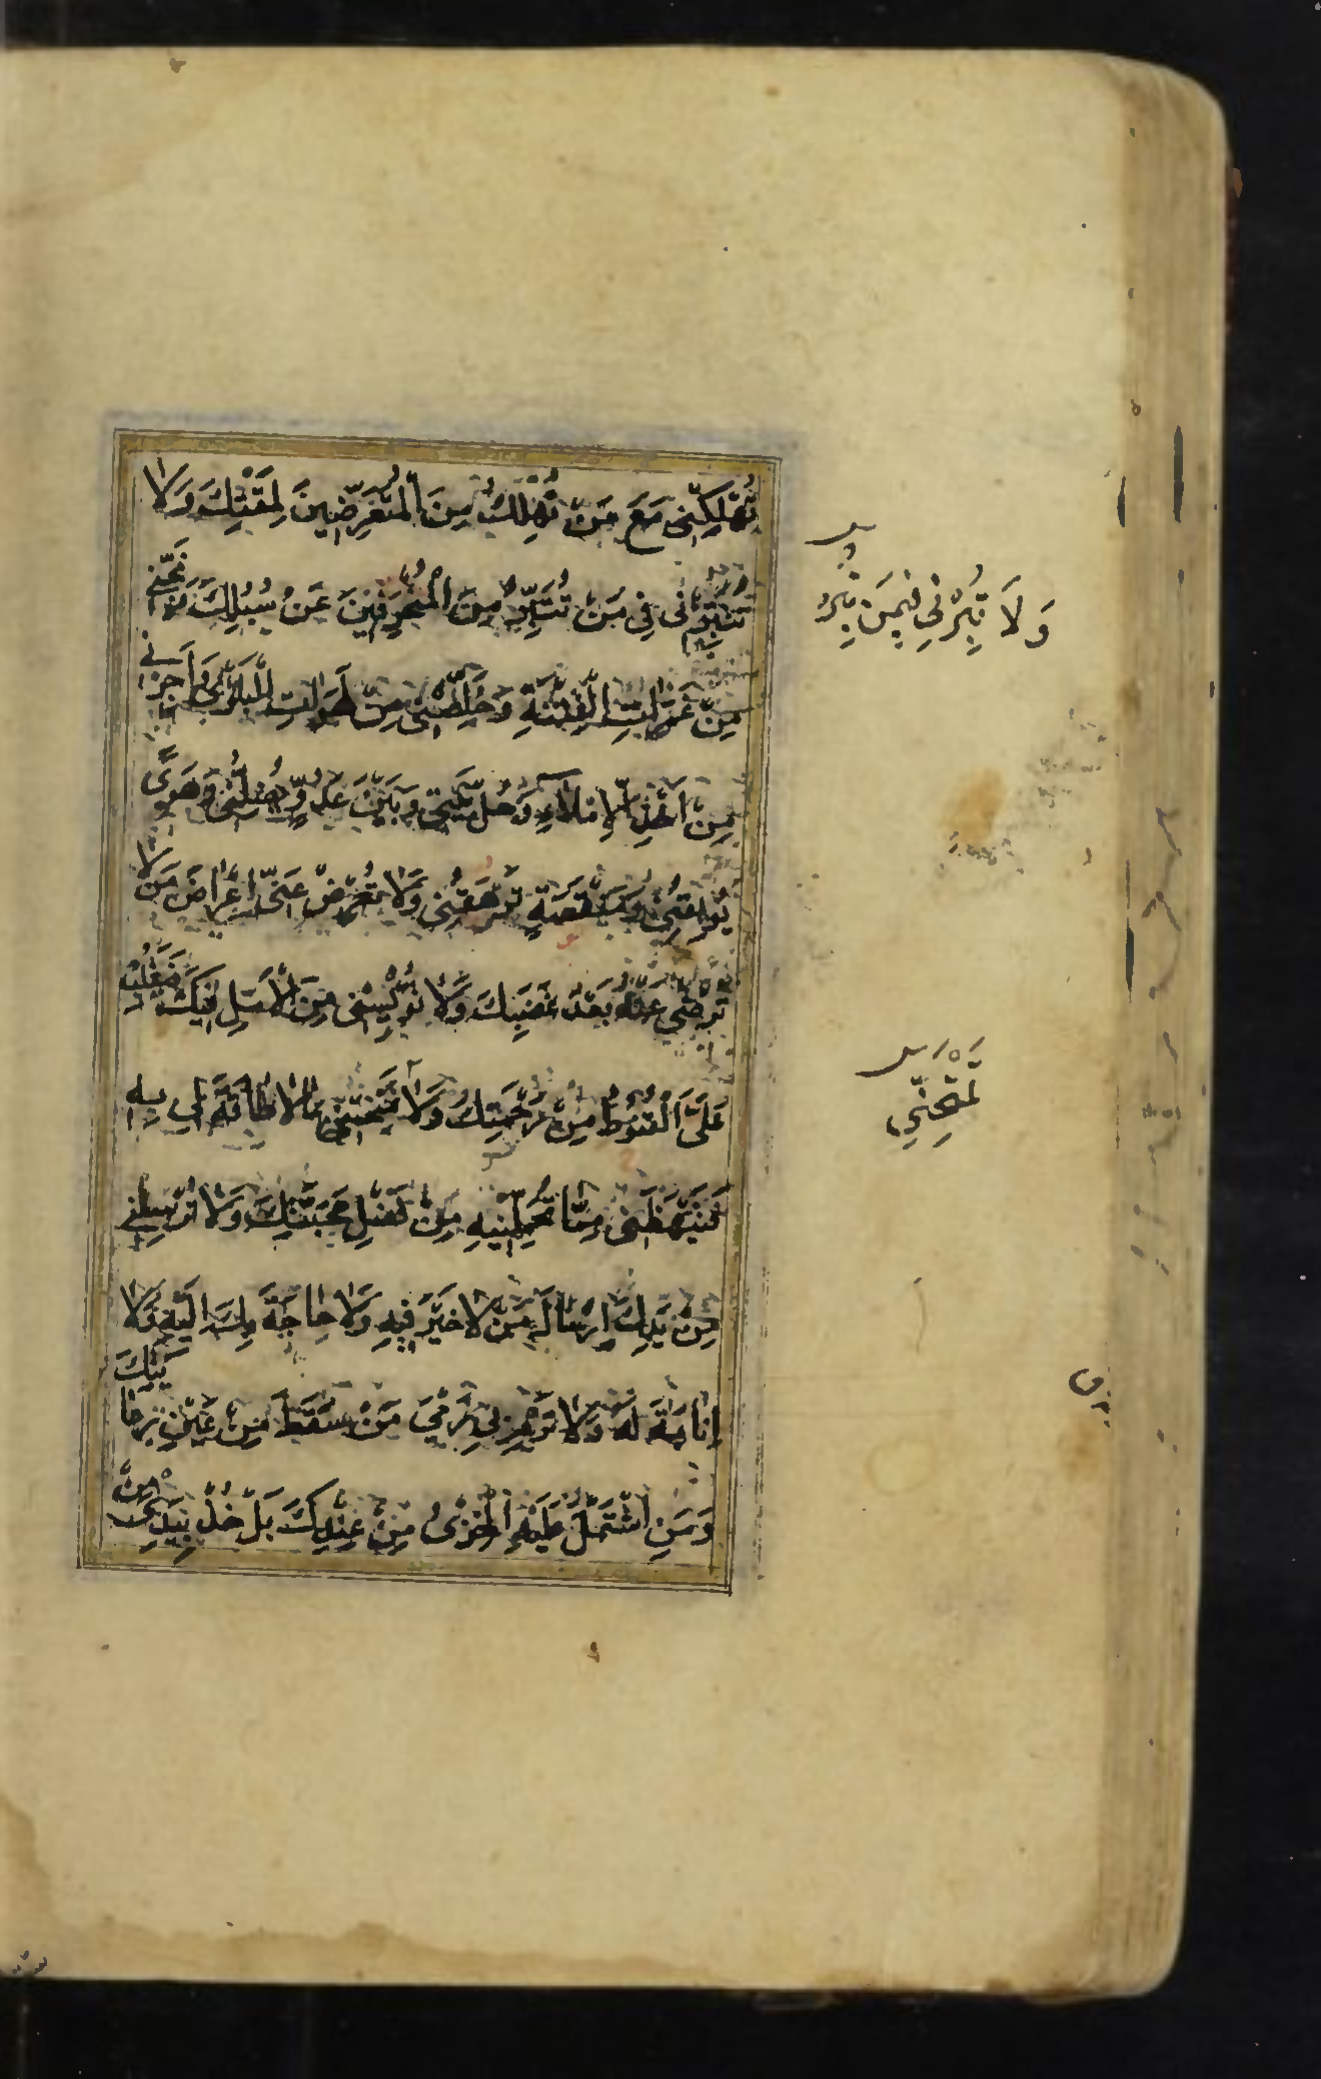 تُهْلِكْنِي مَعَ مَنْ تُهْلِكُ مِنَ الْمُتَعَرِّضِينَ لِمَقْتِكَ وَلَا
تُتَبِّرْنِي فِي مَنْ تُتَبِّرُ مِنَ الْمُنْحَرِفِينَ عَنْ سُبُلِكَ وَنَجِّنِي
مِنْ غَمَرَاتِ الْفِتْنَةِ وَخَلِّصْنِي مِنْ لَهَوَاتِ الْبَلْوَى وَأَجِرْنِي
مِنْ أَخْذِ الْإِمْلَاءِ وَحُلْ بَيْنِي وَبَيْنَ عَدُوٍّ يُضِلُّنِي وَهَوًى
يُوبِقُنِي وَمَنْقَصَةٍ تَرْهَقُنِي وَلَا تُعْرِضْ عَنِّي إِعْرَاضَ مَنْ لَا
تَرْضَى عَنْهُ بَعْدَ غَضَبِكَ وَلَا تُؤْيِسْنِي مِنَ الْأَمَلِ فِيكَ فَيَغْلِبَ
عَلَيَّ الْقُنُوطُ مِنْ رَحْمَتِكَ وَلَا تَمْتَحِنِّي بِمَا لَا طَاقَةَ لِي بِهِ
فَتَبْهَظَنِي مِمَّا تُحَمِّلُنِيهِ مِنْ فَضْلِ مَحَبَّتِكَ وَلَا تُرْسِلْنِي
مِنْ يَدِكَ إِرْسَالَ مَنْ لَا خَيْرَ فِيهِ وَلَا حَاجَةَ بِكَ إِلَيْهِ وَلَا
إِنَابَةَ لَهُ وَلَا تَرْمِ بِي رَمْيَ مَنْ سَقَطَ مِنْ عَيْنِ رِعَايَتِكَ
وَمَنِ اشْتَمَلَ عَلَيْهِ الْخِزْيُ مِنْ عِنْدِكَ بَلْ خُذْ بِيَدِي مِنْ
وَلَا تُبِرْنِي فِيمَنْ تُبِيرُ
تَمْتَحِنِّي